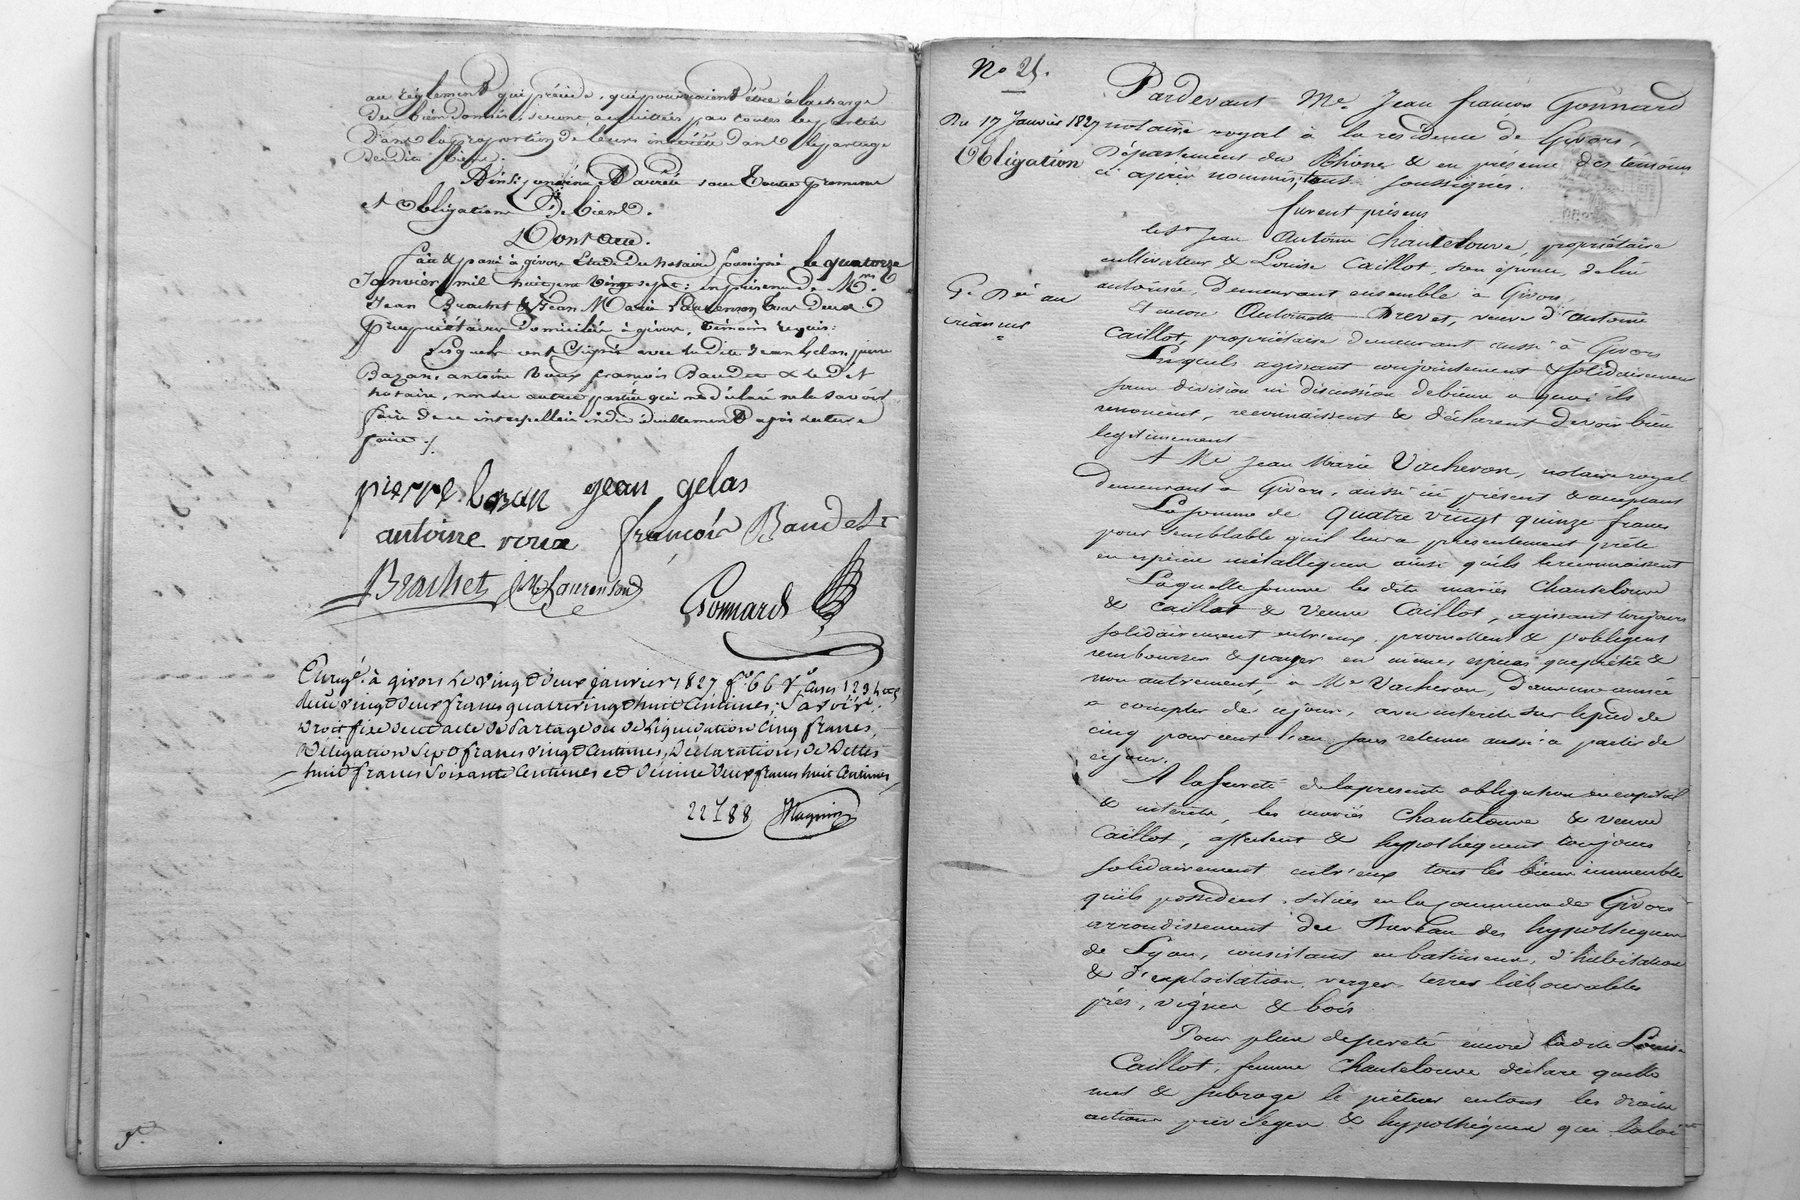 au règlement qui précède, qui pourraient être à la charge
des biens donnés, seront acquittées par toutes les parties
dans la proportion de leurs intérêts dans le partage
des dits biens.
Ainsi convenu et arrêté sous toutes promesses
et obligations de biens.
Dont acte.
fait & passé à givors étude du notaire soussigné le quatorze
Janvier mil huit cent vingt sept: en présence de Mrs
Jean Brachet & Jean Marie Laurenson tous deux
propriétaires domiciliés à givors, témoins requis:
Lesquels ont signé avec le dits Jean Gelas, pierre
Bazan, antoine Roux françois Baudet & le dit
notaire, non les autres parties qui ont déclaré ne le savoir
faire de ce interpellées individuellement après lecture
faite ./.
pierre bazan jean gelas
antoine roux françois Baudet
Brachet JM Laurenson
Gonnard
Enregé. à givors le vingt deux janvier 1827 fo. 66 Vo. cases 1 2 3 4 et
reçu vingt deux francs quatre vingt huit centimes, Savoir:
Droit fixe de cet acte de Partage ou de liquidation cinq francs,
Délégation Sept francs vingt centimes, Déclarations de Dettes
huit francs soixante centimes et dixième deux francs huit centimes
22f 88 Magnin
No 21.
Du 17 Janvier 1827
Obligation
Gr. Dé au
créancier
Pardevant Me. Jean françois Gonnard
notaire royal à la résidence de Givors,
Département du Rhône & en présence des témoins
ci après nommés, tous soussignés.
furent présens
le Sr Jean Antoine Chantelouve, propriétaire
cultivateur & Louise Caillot, son épouse, de lui
autorisée, demeurant ensemble à Givors,
Et encore Antoinette Brevet, veuve d'antoine
Caillot, propriétaire demeurant aussi à Givors
Lesquels agissant conjointement & solidairement
sans division ni discussion de biens à quoi ils
renoncent, reconnaissent & déclarent devoir bien
légitimement
A Me Jean Marie Vacheron, notaire royal
demeurant à Givors, aussi ici présent & acceptant
La somme de quatre vingt quinze francs
pour semblable qu'il leur a présentement prêtée
en espèces métalliques ainsi qu'ils le reconnaissent
Laquelle somme les dits mariés Chantelouve
& Caillot & veuve Caillot, agissant toujours
solidairement entr'eux, promettent & s'obligent
rembourser & payer en mêmes espèces que prêtée &
non autrement, à Me Vacheron, dans une année
à compter de ce jour, avec intérêts sur le pied de
cinq pour cent l'an sans retenue aussi à partir de
ce jour.
A la sureté de la présente obligation en capital
& intérêts, les mariés Chantelouve & veuve
Caillot, affectent & hypothèquent toujours
solidairement entr'eux tous les biens immeubles
qu'ils possèdent, situés en la commune de Givors
arrondissement du Bureau des hypothèques
de Lyon, consistant en batimens, d'habitation
& d'exploitation, verger terres labourables
prés, vignes & bois
Pour plus de sureté encore ladite Louise
Caillot, femme Chantelouve déclare quelle
met & subroge le prêteur en tous les droits
actions privilèges & hypothèques que la loi